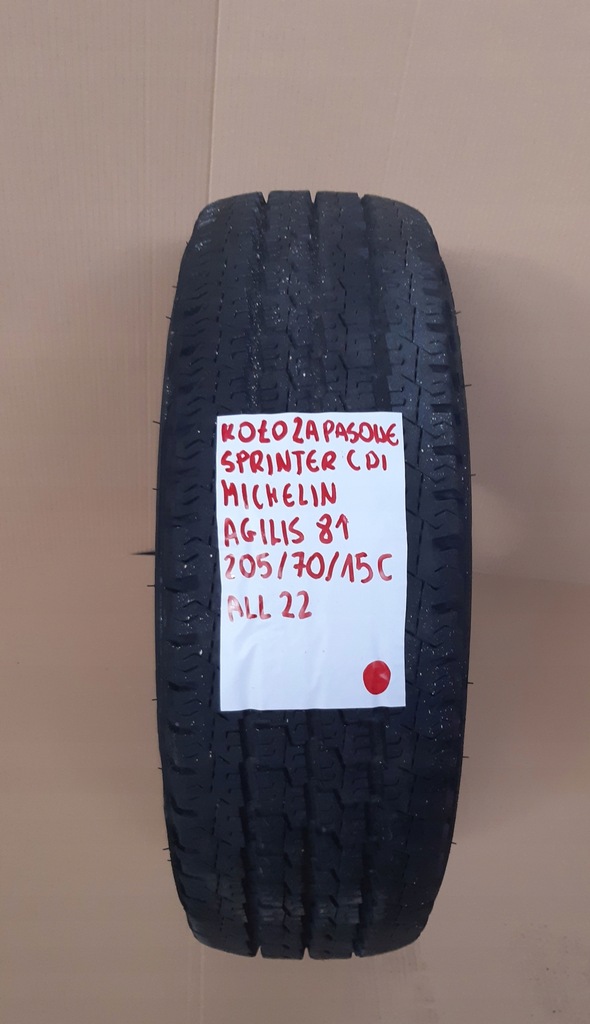 KOŁO ZAPASOWE
SPRINTER CDI
MICHELIN
AGILIS 81
205/70/15C
ALL 22